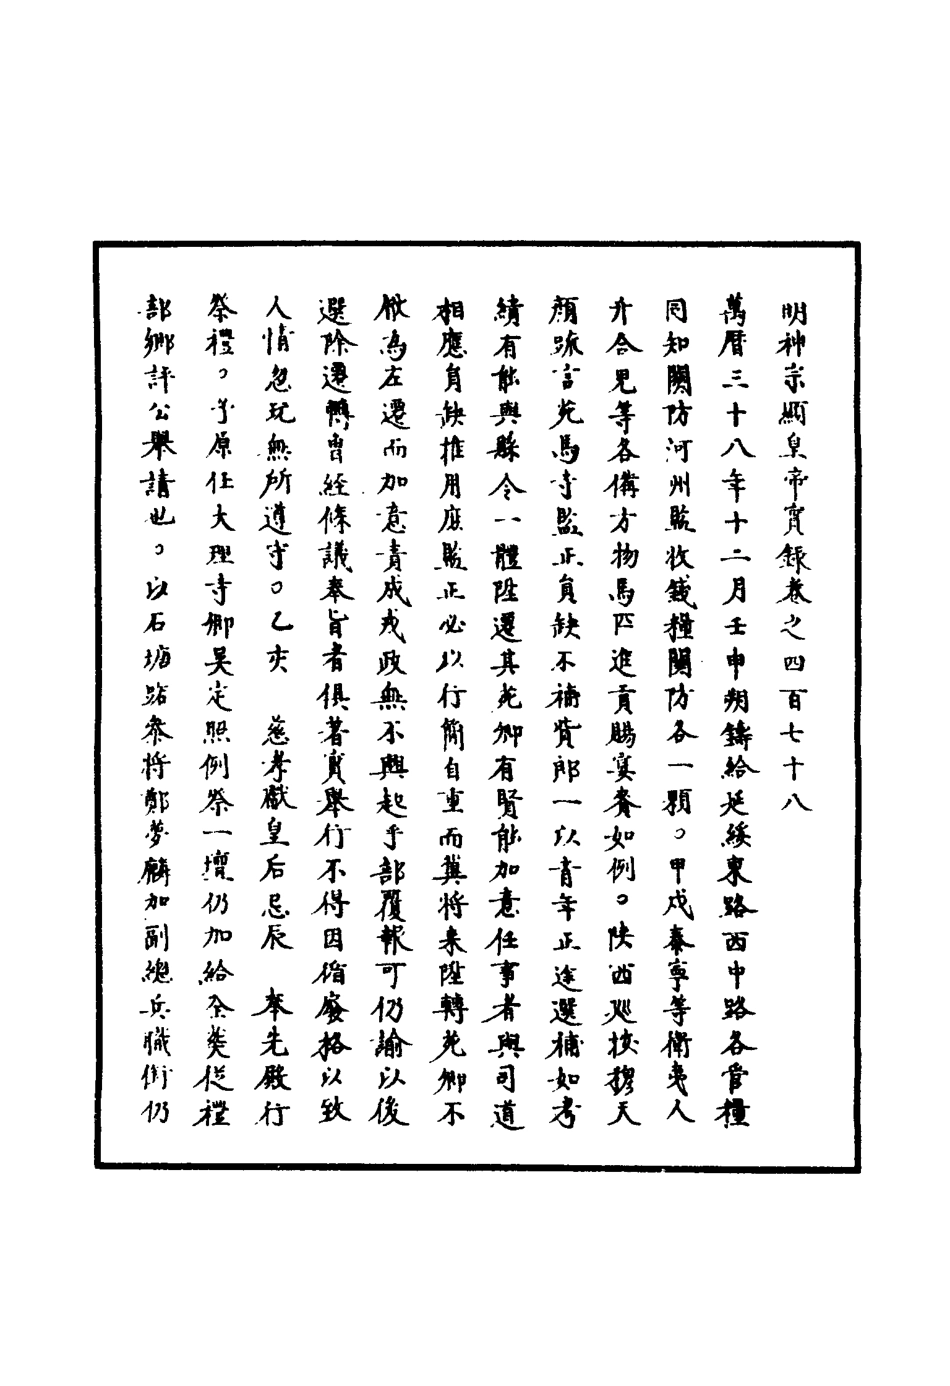 明神宗顯皇帝實錄卷之四百七十八
萬曆三十八年十二月壬申朔鑄給延綏東路西中路各管糧
同知關防河州監收錢糧關防各一顆○甲戌泰寧等衛夷人
升合兒等各備方物馬匹進貢賜宴賚如例○陝西巡按穆天
顏疏言苑馬寺監正員缺不補貲郎一以青年正途選補如考
績有能與縣令一體陞遷其苑卿有賢能加意任事者與司道
相應員缺推用庶監正必以行簡自重而冀將來陞轉苑卿不
俶為左遷而加意責成戎政無不興起乎部覆報可仍諭以後
選除遷轉曾經條議奉旨者俱著實舉行不得因循廢格以致
人情忽玩無所遵守○乙亥 慈孝獻皇后忌辰 奉先殿行
祭禮○予原任大理寺卿吳定照例祭一壇仍加給全葬從禮
部鄉評公舉請也○以石塘路參將鄭夢麟加副總兵職銜仍